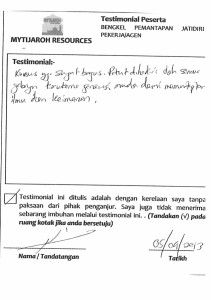 Testimonial Peserta
BENGKEL PEMANTAPAN JATIDIRI
PEKERJA/AGEN
MYTIJAROH RESOURCES
Testimonial:-
Kursus yg sangat bagus. Patut dihadiri oleh semua
golongan terutama generasi muda demi memantapkan
ilmu dan keimanan.
Testimonial ini ditulis adalah dengan kerelaan saya tanpa
paksaan dari pihak penganjur. Saya juga tidak menerima
sebarang imbuhan melalui testimonial ini. . (Tandakan (√) pada
ruang kotak jika anda bersetuju)
05/09/2013
Nama / Tandatangan
Tarikh